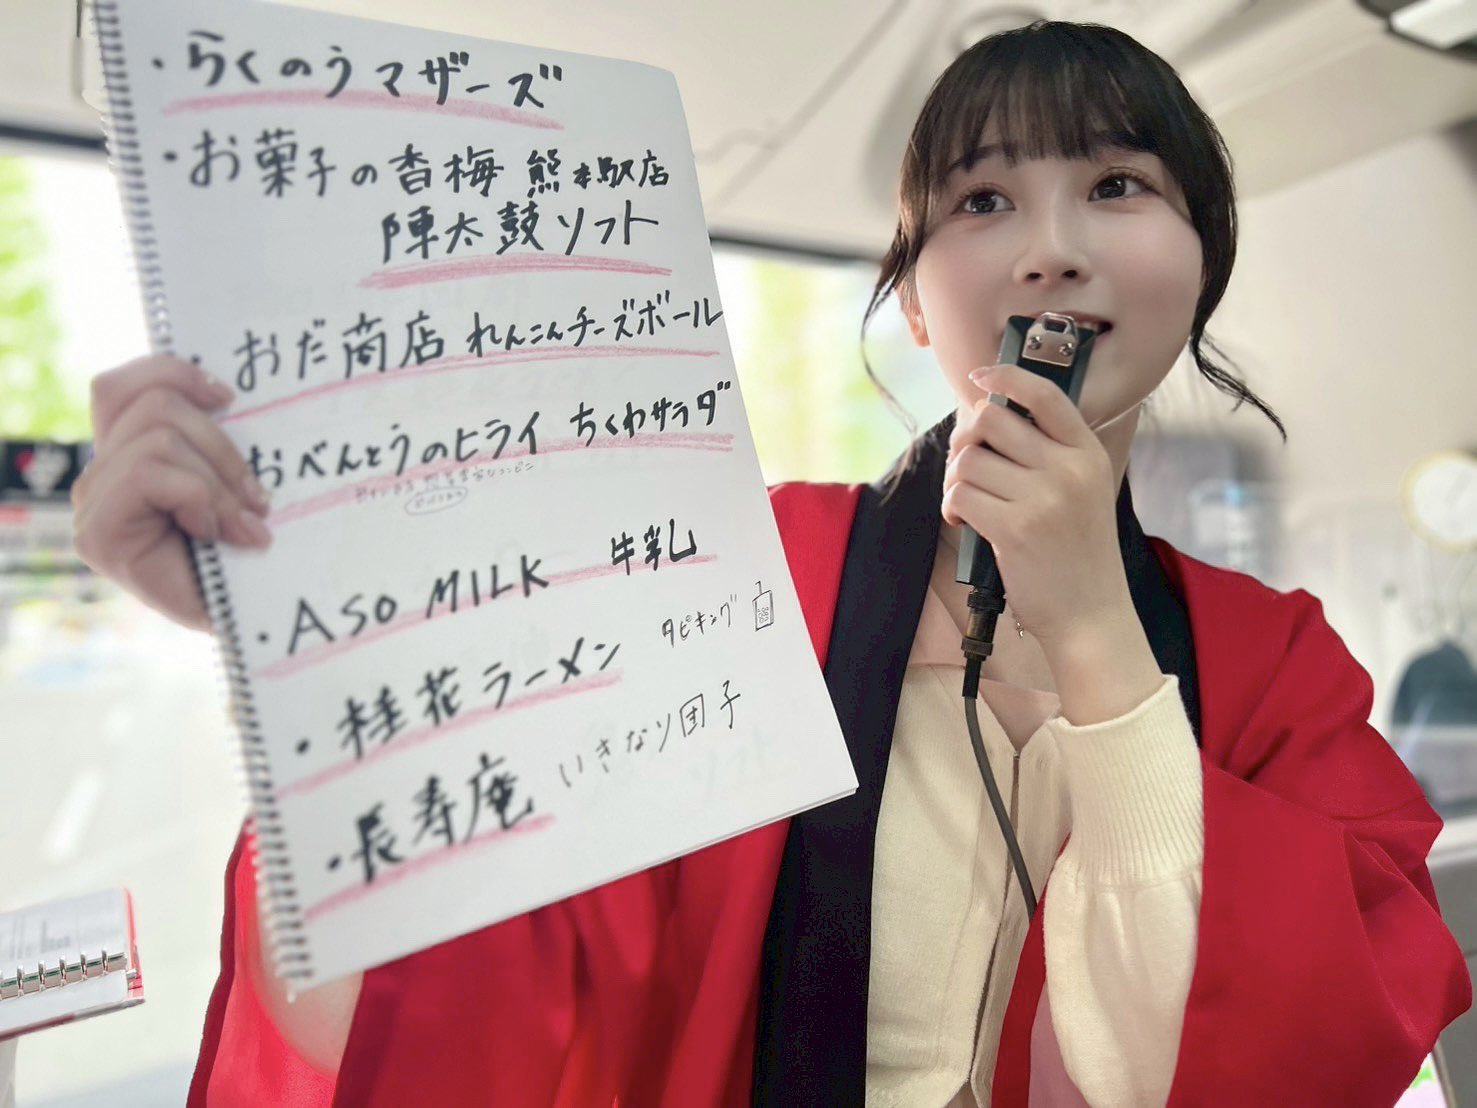 ・らくのうマザーズ
・お菓子の香梅 熊本駅店
陣太鼓ソフト
・おだ商店 れんこんチーズボール
おべんとうのヒライ ちくわサラダ
・ASO MILK 牛乳
・桂花ラーメン タピキング
・長寿庵 いきなり団子